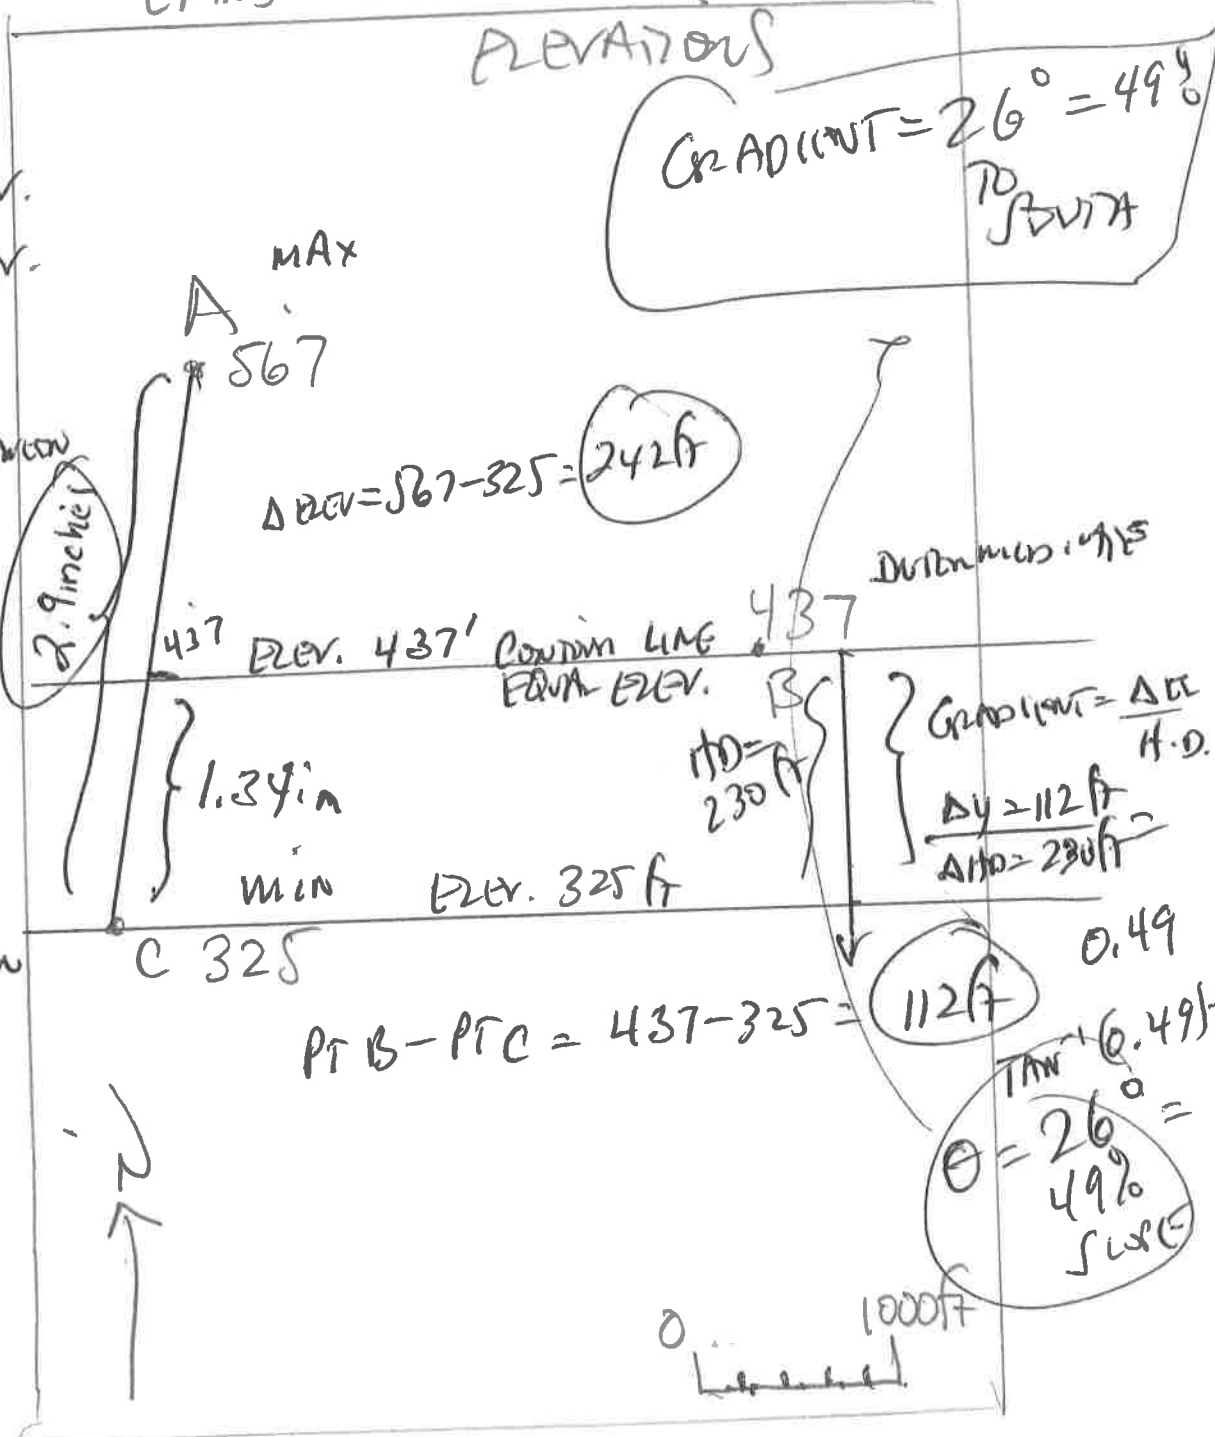 ELEVATIONS
GRADIENT = 26° = 49%
TO
SOUTH
MAX
A
567
2.9 inches
Δ ELEV = 567-325 = 242 ft
437
ELEV. 437' CONTOUR LINE
EQUAL ELEV.
.437
B
HD =
230 ft
GRADIENT = ΔEL
H.D.
Δy = 112 ft
ΔHD = 230 ft =
0.49
1.34 in
min
ELEV. 325 ft
C 325
PT B - PT C = 437-325 = 112 ft
TAN⁻¹ (0.49)
θ = 26° =
49%
SLOPE
N
0
1000 ft